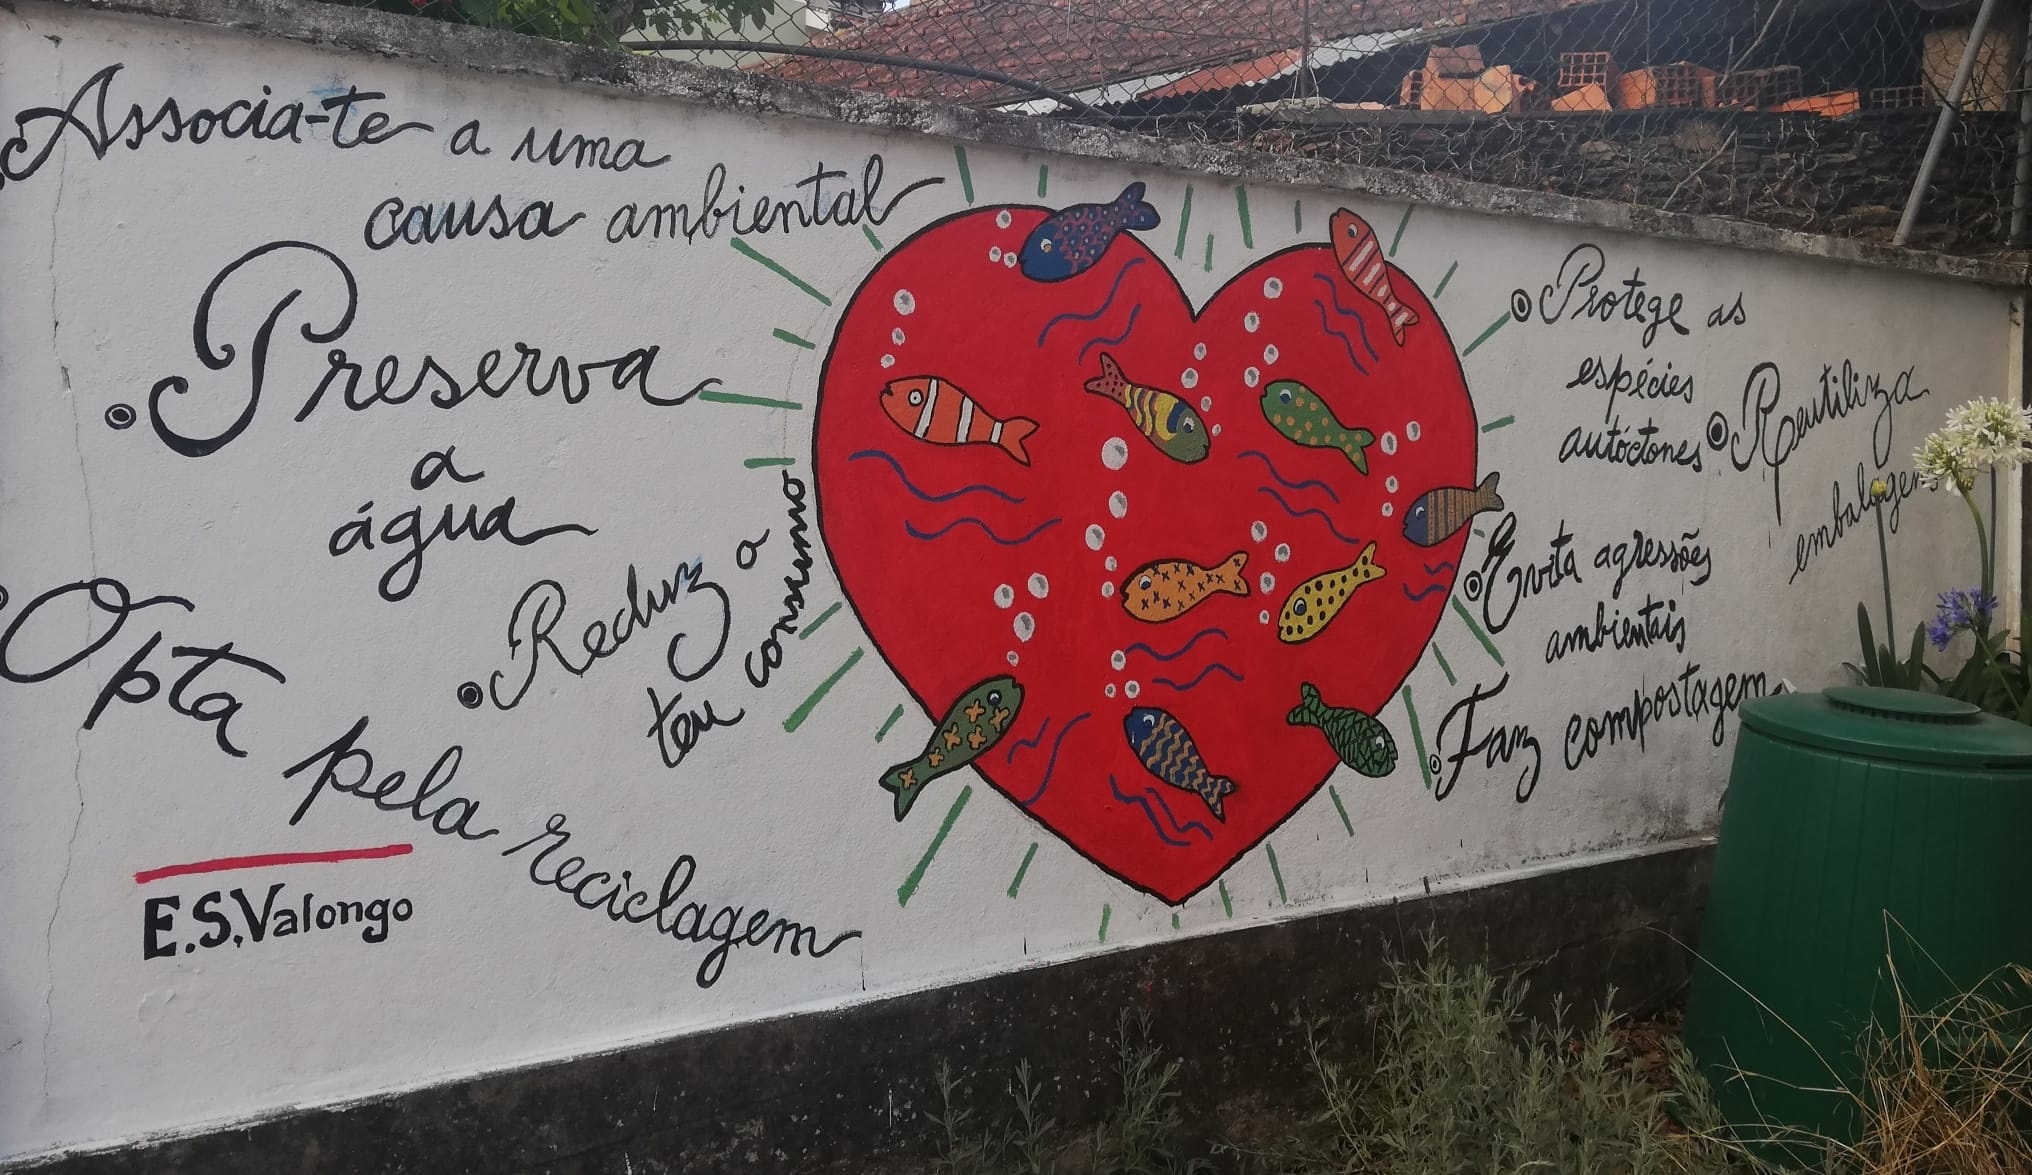 Associa-te a uma
causa ambiental
Preserva
a
água
Reduz o
teu consumo
Opta pela reciclagem
E.S.Valongo
Protege as
espécies
autóctones
Reutiliza
embalagens
Evita agressões
ambientais
Faz compostagem